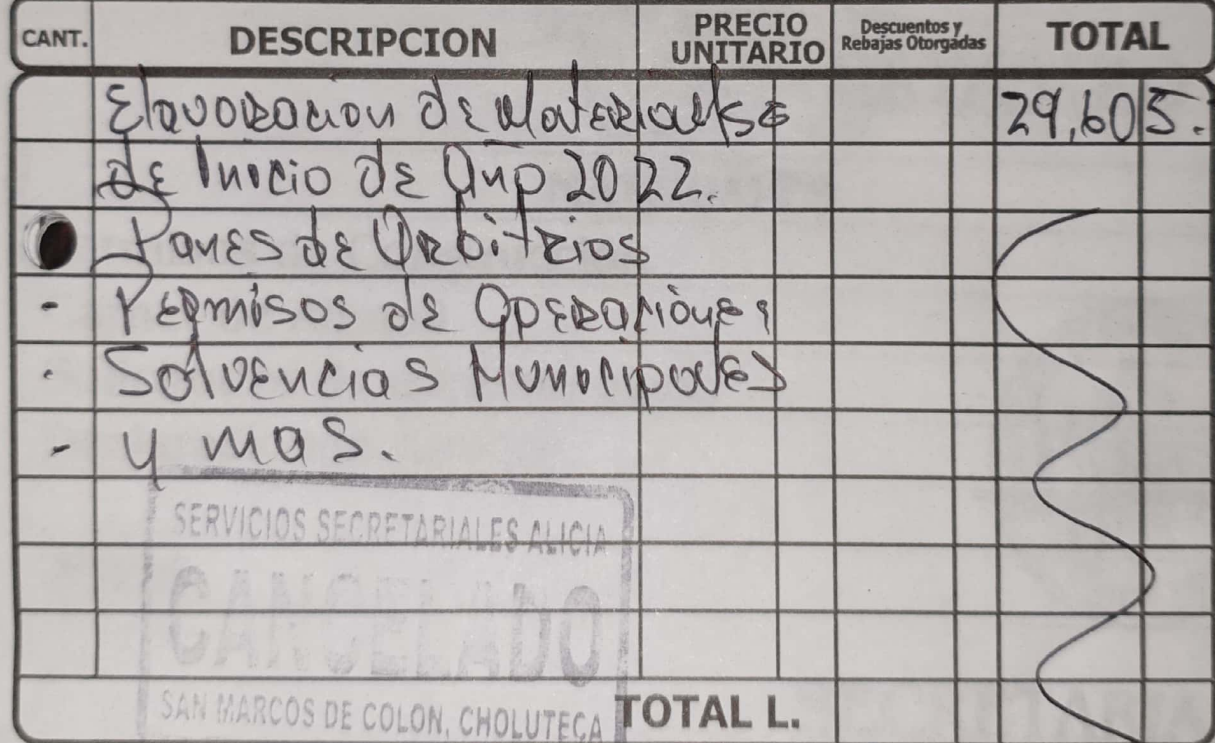 CANT. DESCRIPCION PRECIO UNITARIO Descuentos y Rebajas Otorgadas TOTAL
Elavoracion de Materiales 29,605.
de Inicio de Año 2022.
Panes de Arbitrios
- Permisos de Operaciones
- Solvencias Municipales
- y mas.
SERVICIOS SECRETARIALES ALICIA
CANCELADO
SAN MARCOS DE COLON, CHOLUTECA
TOTAL L.